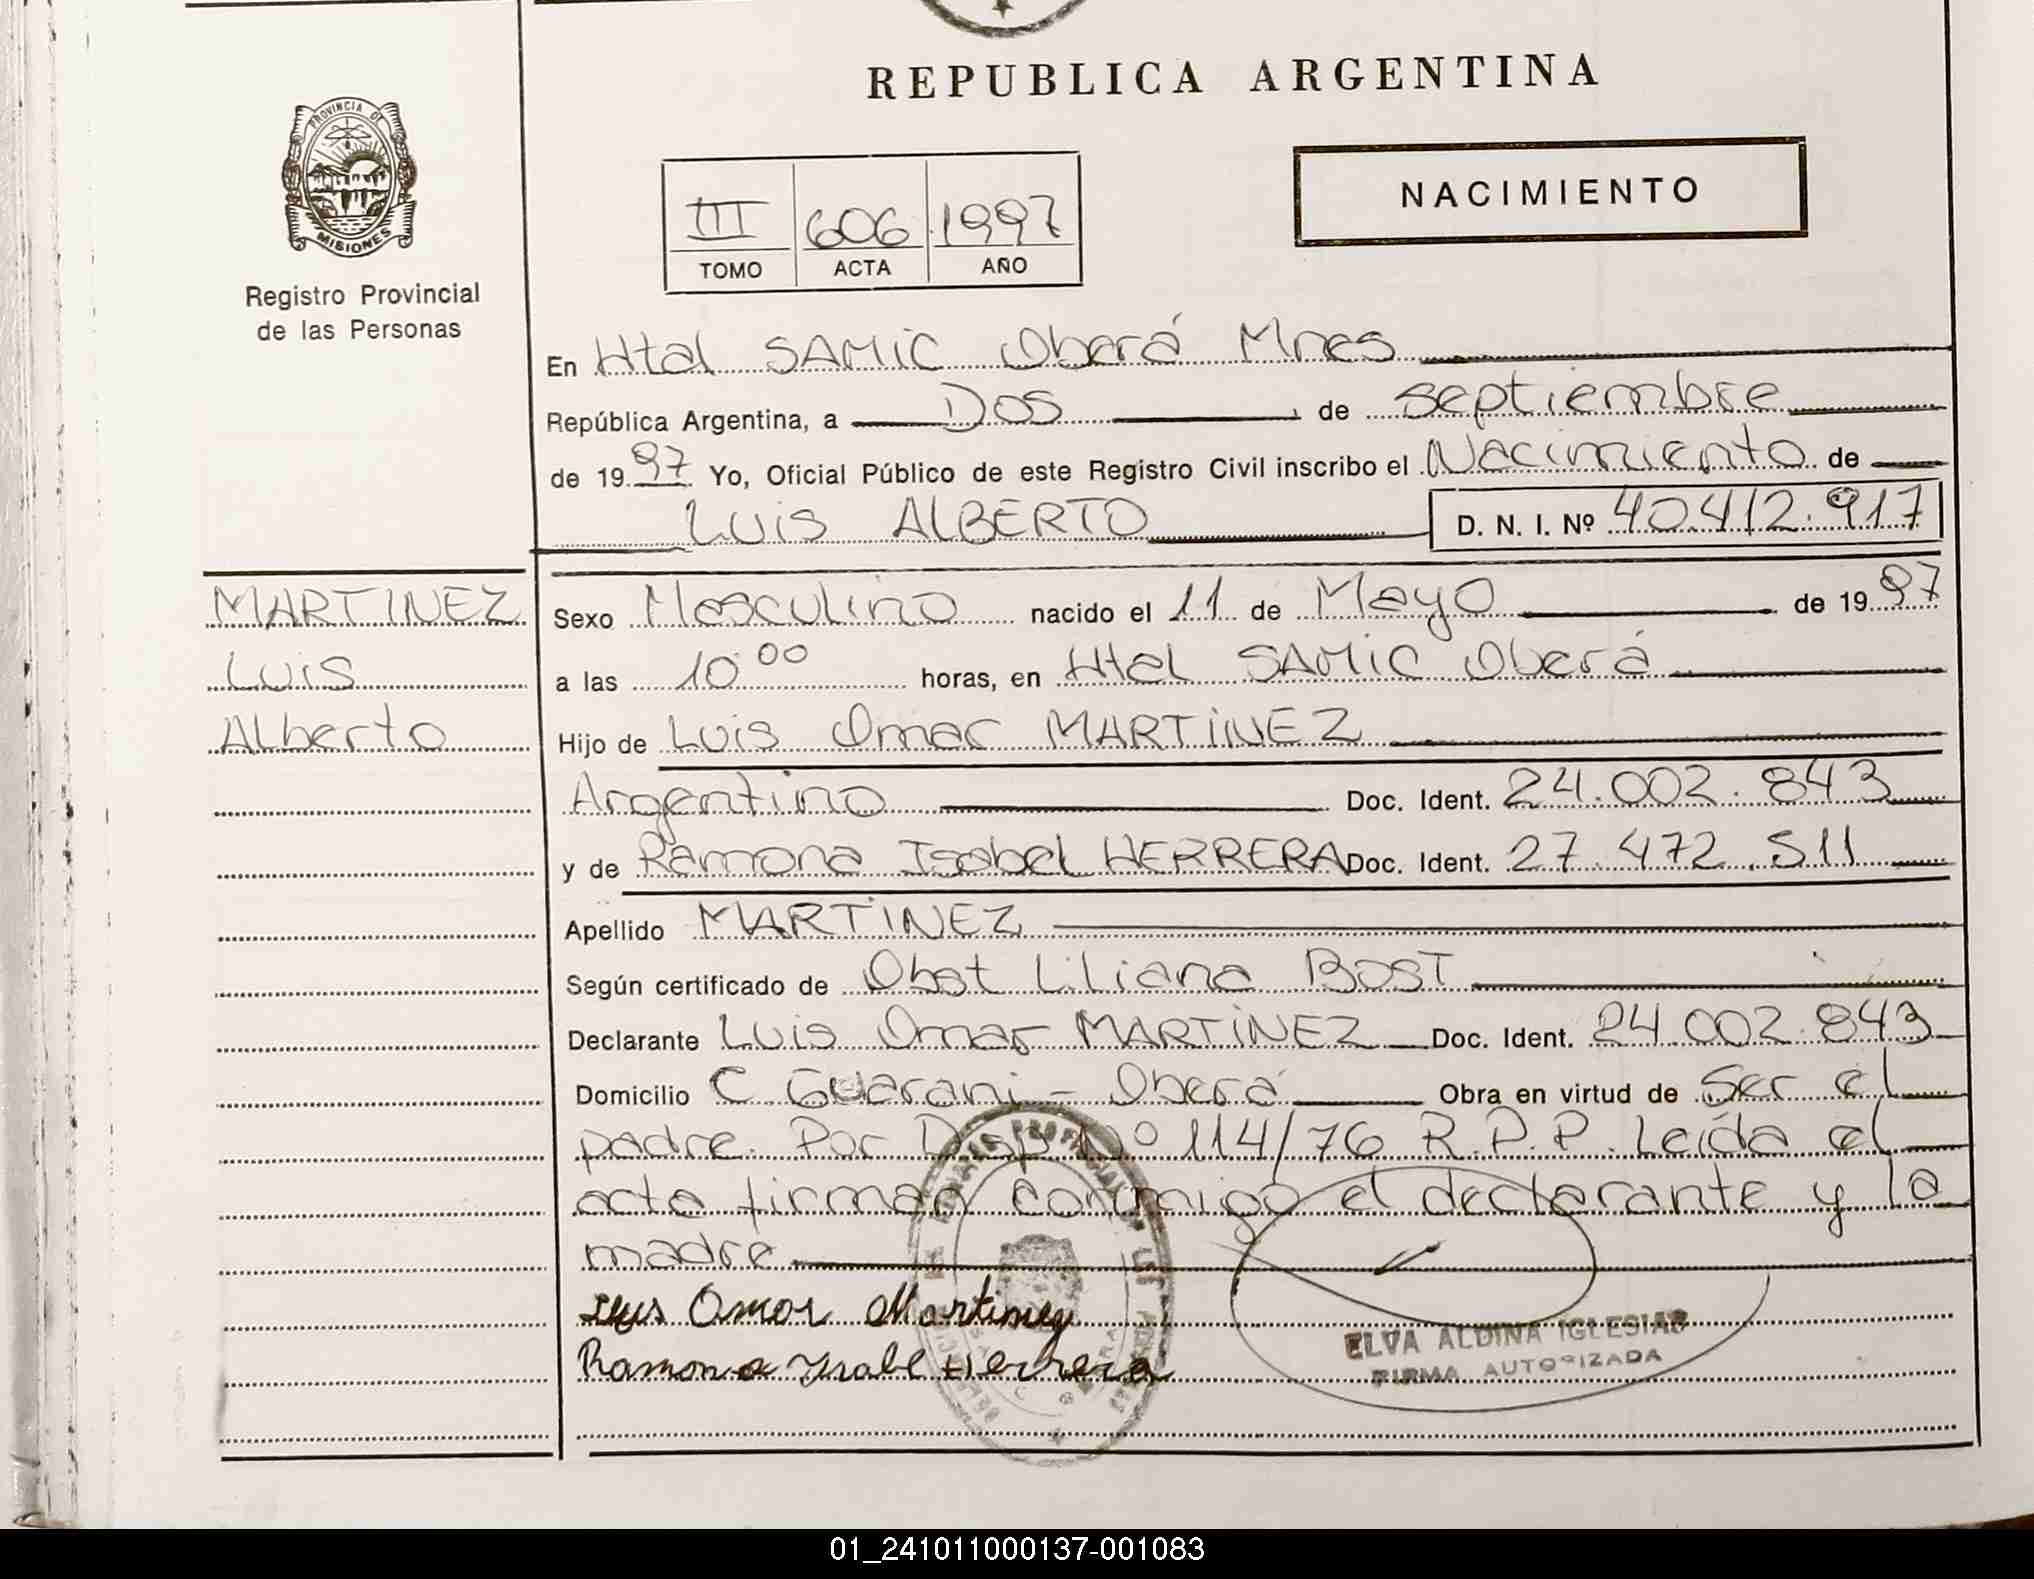 REPUBLICA ARGENTINA
PROVINCIA DE
MISIONES
Registro Provincial
de las Personas
NACIMIENTO
III 606 1997
TOMO ACTA AÑO
En Htal SAMIC Oberá Mnes
República Argentina, a Dos de septiembre
de 1997 Yo, Oficial Público de este Registro Civil inscribo el Nacimiento de
LUis ALBERTO D. N. I. Nº 40.412.917
MARTINEZ
Luis
Alberto
Sexo Masculino nacido el 11 de Mayo de 1997
a las 10⁰⁰ horas, en Htal SAMIC Oberá
Hijo de Luis Omar MARTINEZ
Argentino Doc. Ident. 24.002.843
y de Ramona Isabel HERRERA Doc. Ident. 27.472.511
Apellido MARTINEZ
Según certificado de Obst Liliana BOST
Declarante Luis Omar MARTINEZ Doc. Ident. 24.002.843
Domicilio C Guarani - Oberá Obra en virtud de Ser el
padre. Por Disp Nº 114/76 R.P.P. Leída el
acta firman conmigo el declarante y la
madre
Luis Omar Martinez
Ramona Ysabel Herrera
ELVA ALDINA IGLESIAS
FIRMA AUTORIZADA
01_241011000137-001083